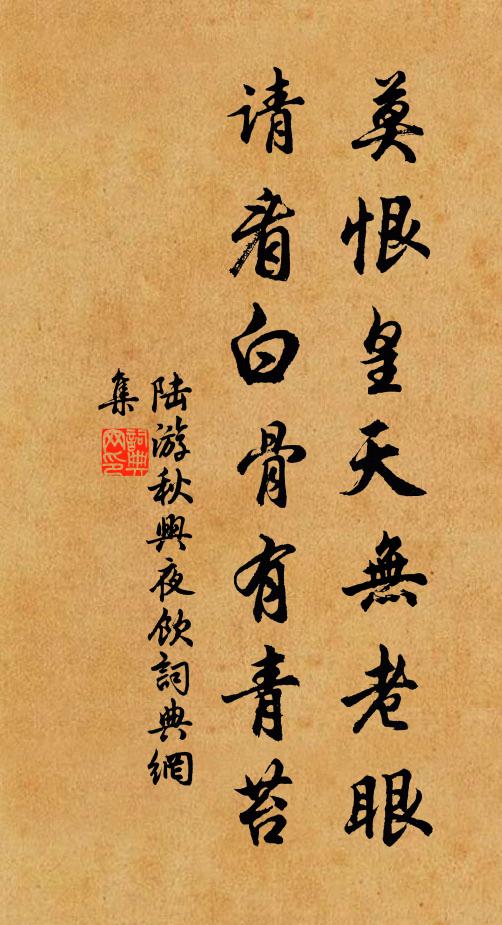 莫恨皇天無老眼
请看白骨有青苔
陆游秋興夜飲詞典網
集
詞典網印